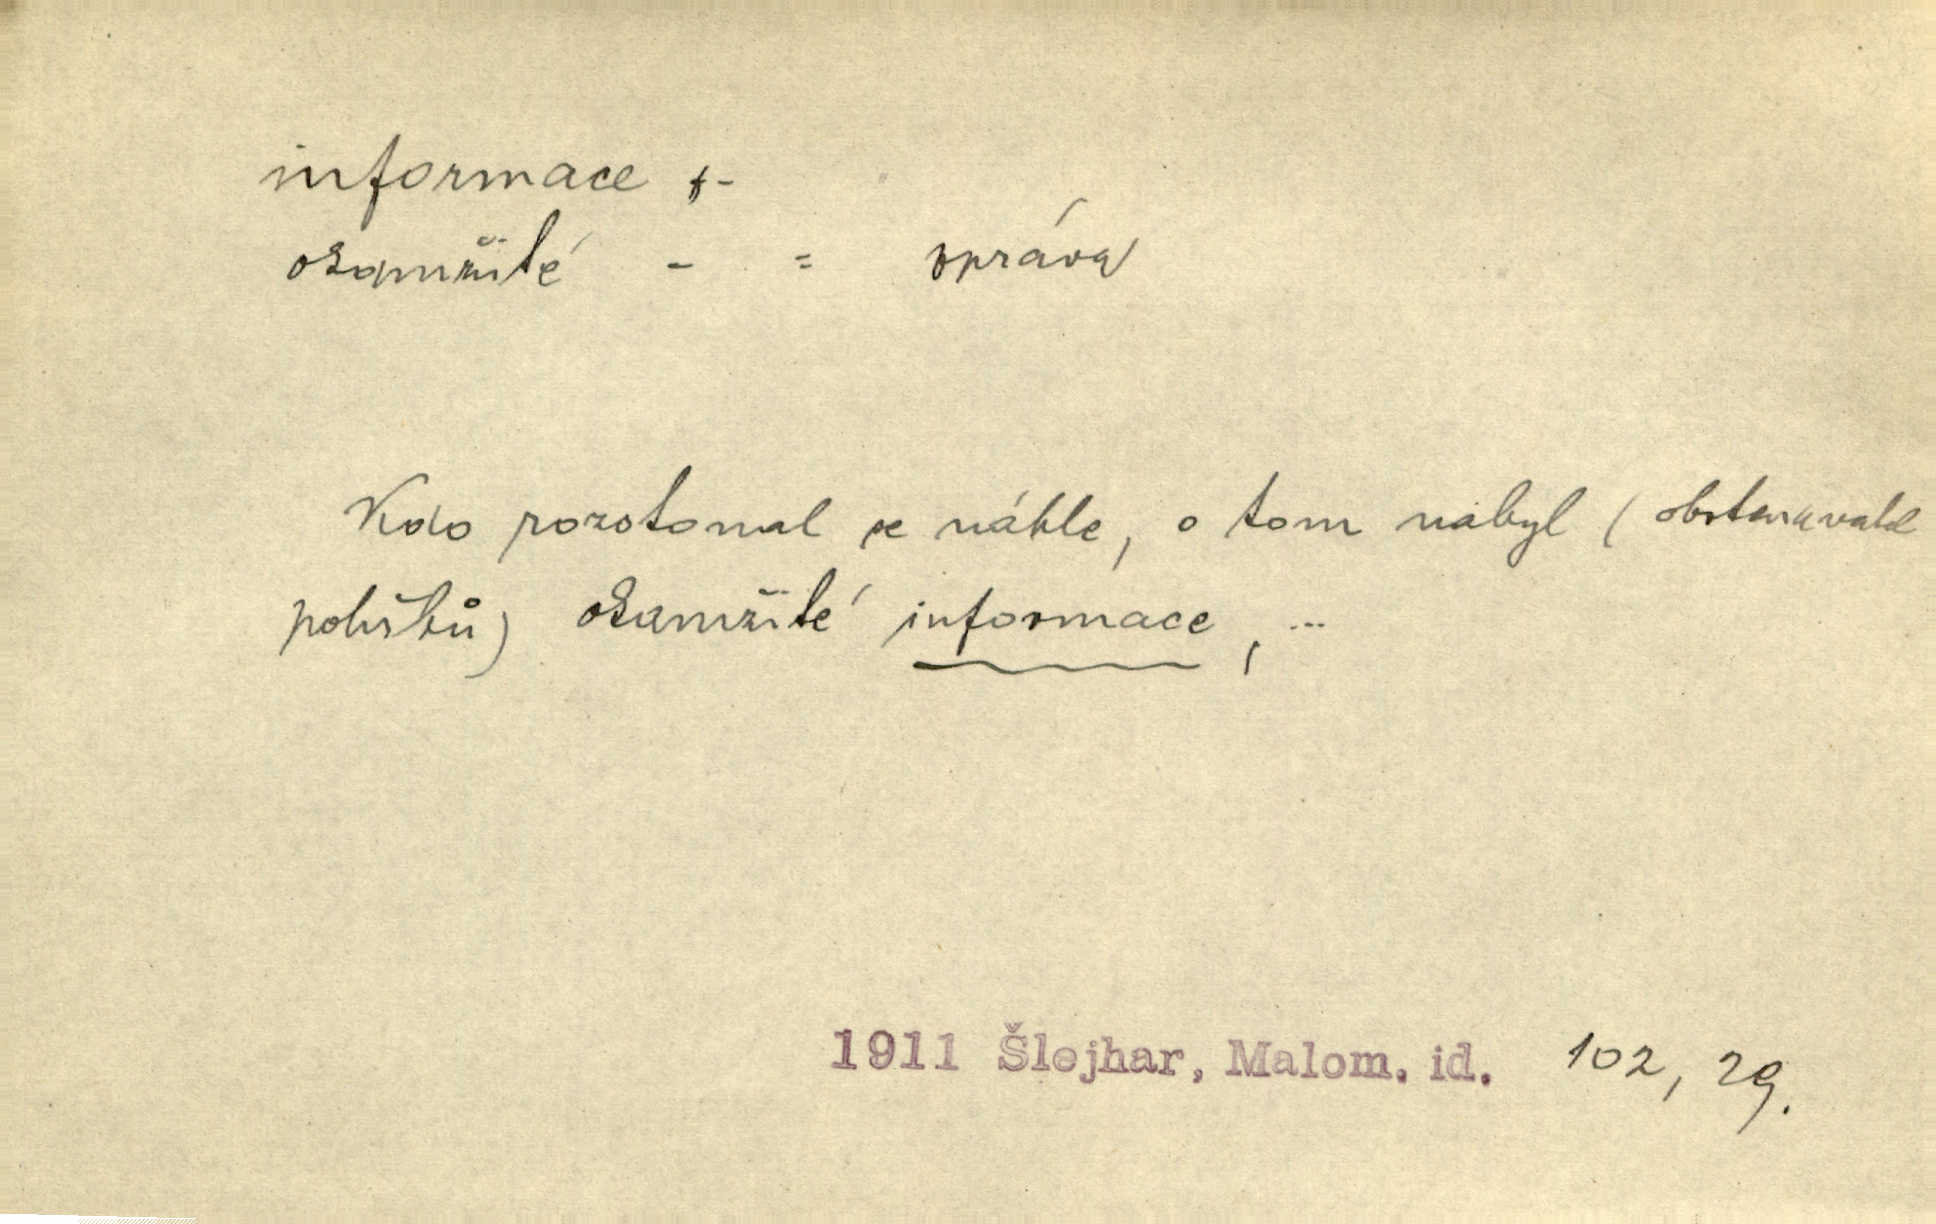 informace f-
okamžité - = zpráva
Kdo rozstonal se náhle, o tom nabyl (obstaravatel
pohřbů) okamžité informace, ...
1911 Šlejhar, Malom. id. 102, 29.